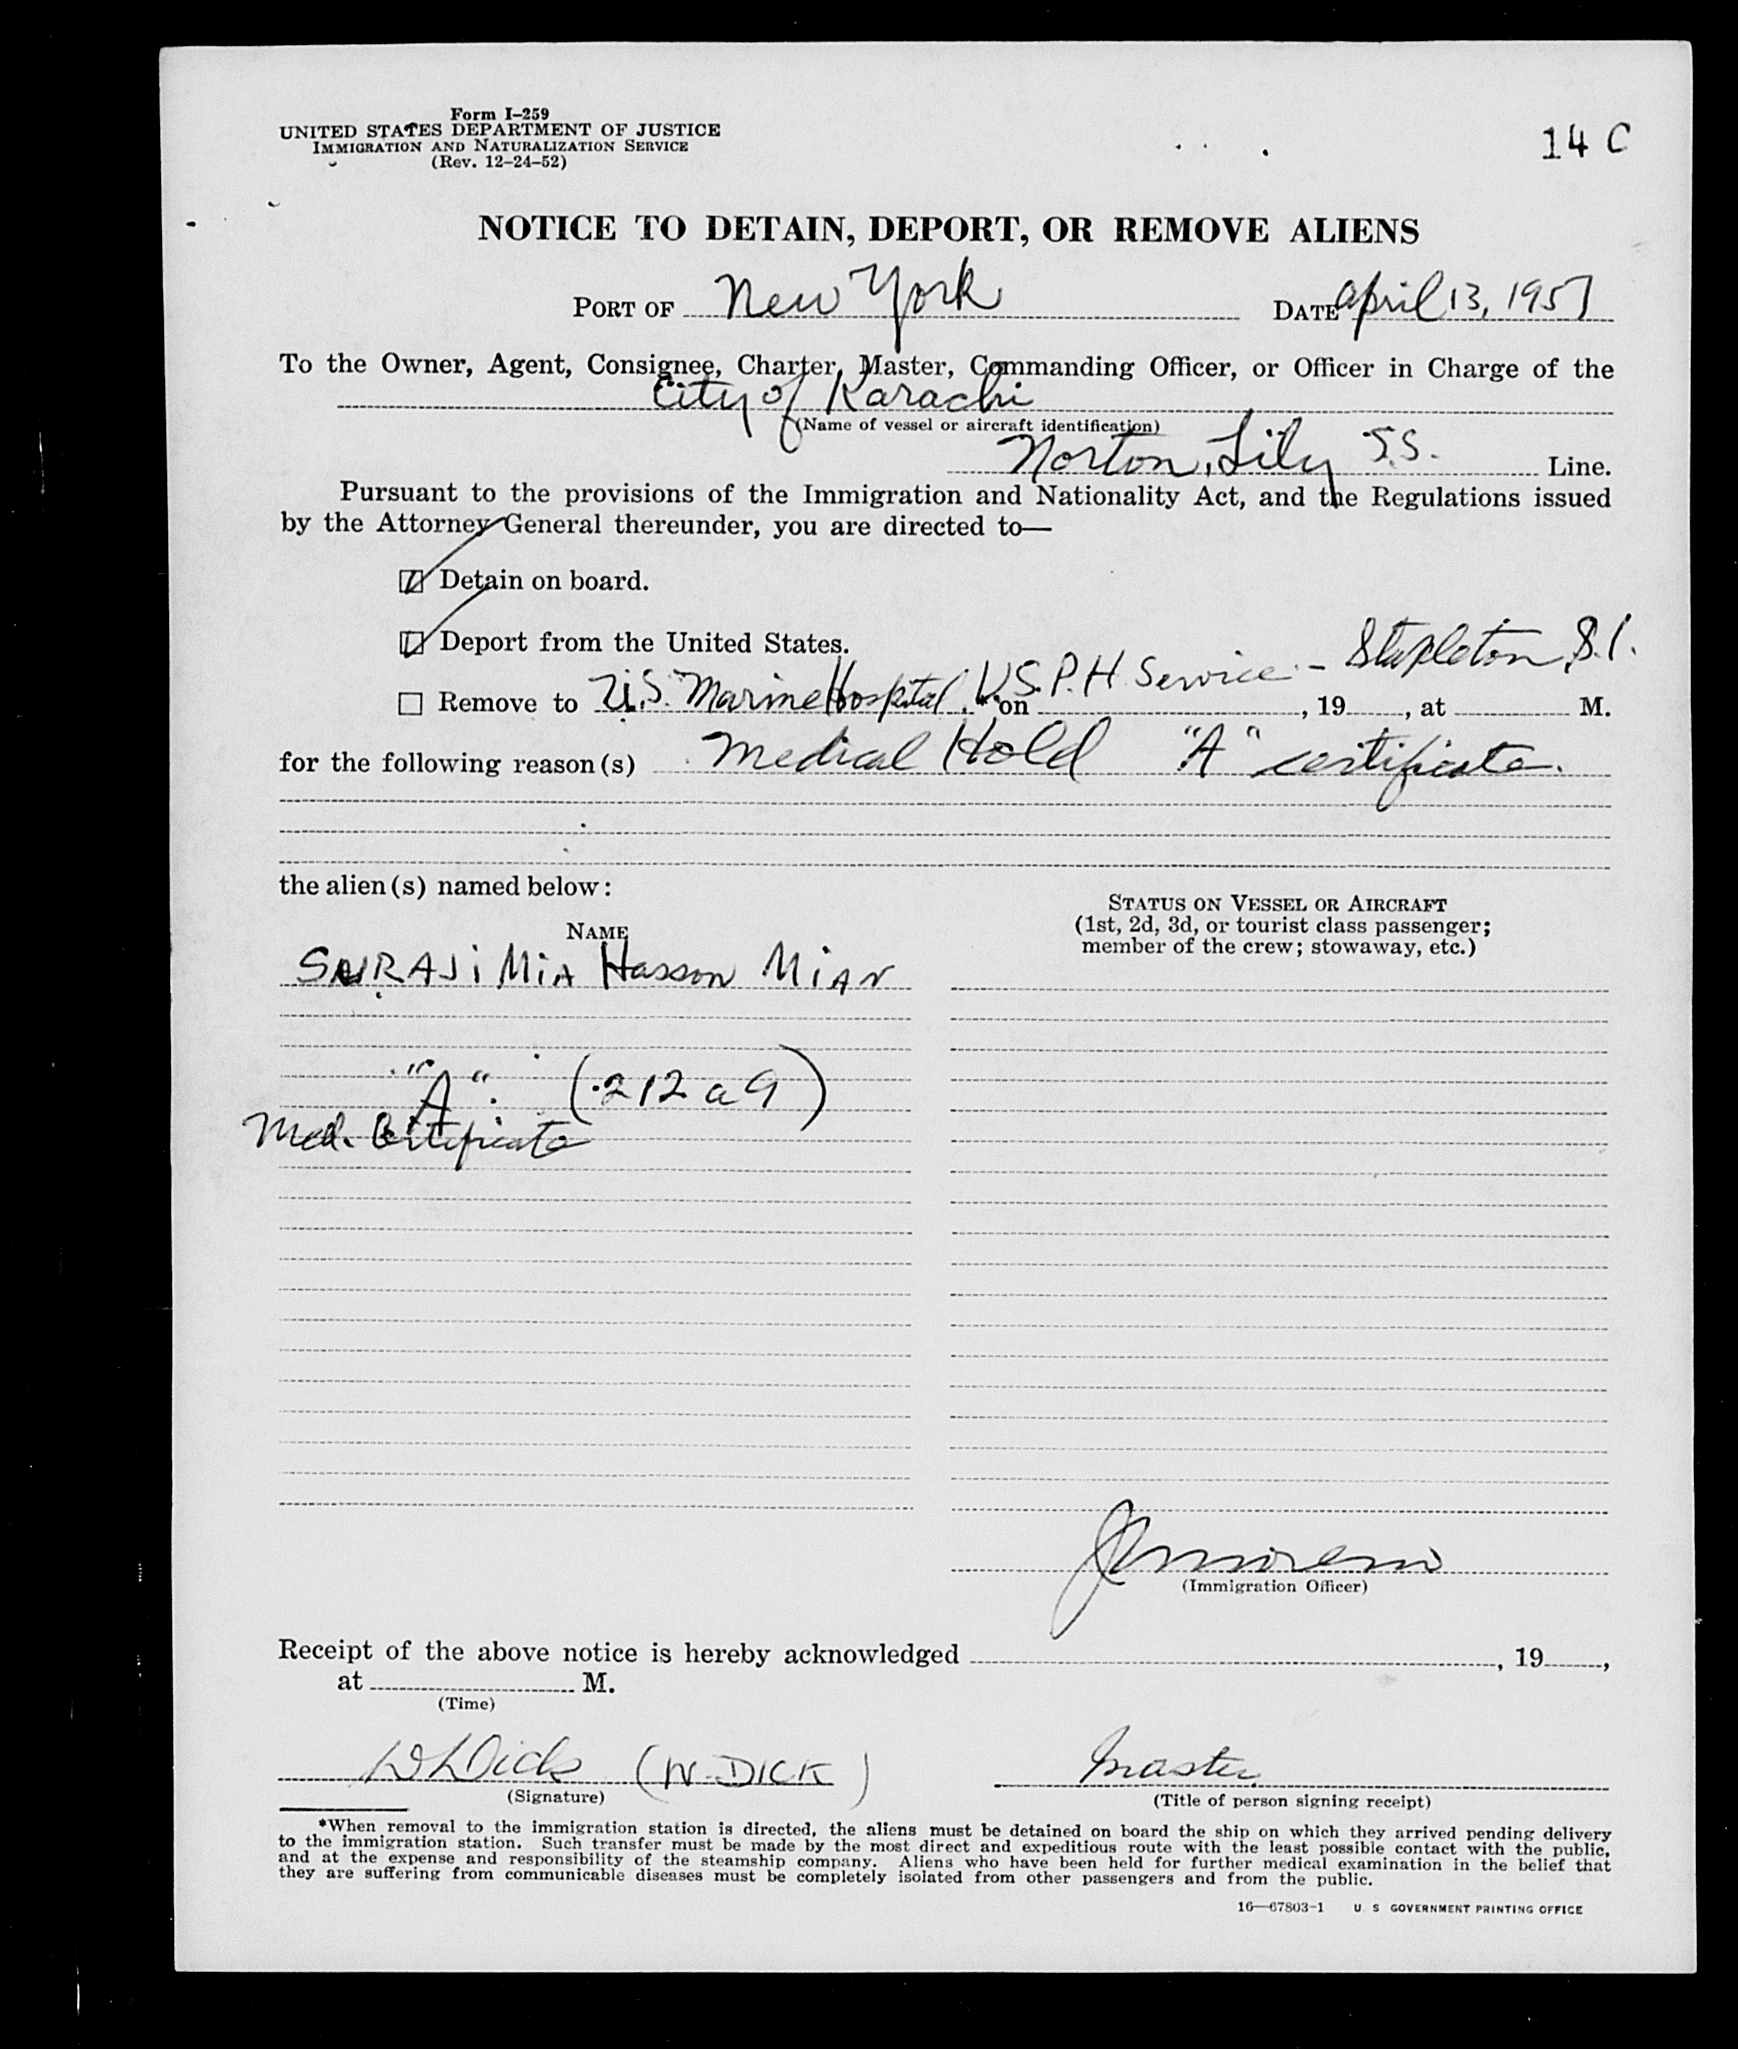 Form I-259
UNITED STATES DEPARTMENT OF JUSTICE
IMMIGRATION AND NATURALIZATION SERVICE
(Rev. 12-24-52)
14 C
NOTICE TO DETAIN, DEPORT, OR REMOVE ALIENS
PORT OF New York DATE April 13, 1957
To the Owner, Agent, Consignee, Charter, Master, Commanding Officer, or Officer in Charge of the
City of Karachi
(Name of vessel or aircraft identification)
Norton, Lily S.S. Line.
Pursuant to the provisions of the Immigration and Nationality Act, and the Regulations issued
by the Attorney General thereunder, you are directed to—
Detain on board.
Deport from the United States.
Remove to U.S. Marine Hospital, U.S.P.H. Service - Stapleton S.I. *on , 19 , at M.
for the following reason(s) Medical Hold "A" certificate.
the alien(s) named below:
NAME
STATUS ON VESSEL OR AIRCRAFT
(1st, 2d, 3d, or tourist class passenger;
member of the crew; stowaway, etc.)
Mia Hasson Mian
"A" (212 a 9)
Med. Certificate
(Immigration Officer)
Receipt of the above notice is hereby acknowledged , 19 ,
at M.
(Time)
W Dick (W. DICK) Master
(Signature) (Title of person signing receipt)
*When removal to the immigration station is directed, the aliens must be detained on board the ship on which they arrived pending delivery
to the immigration station. Such transfer must be made by the most direct and expeditious route with the least possible contact with the public,
and at the expense and responsibility of the steamship company. Aliens who have been held for further medical examination in the belief that
they are suffering from communicable diseases must be completely isolated from other passengers and from the public.
16—67803-1 U. S. GOVERNMENT PRINTING OFFICE